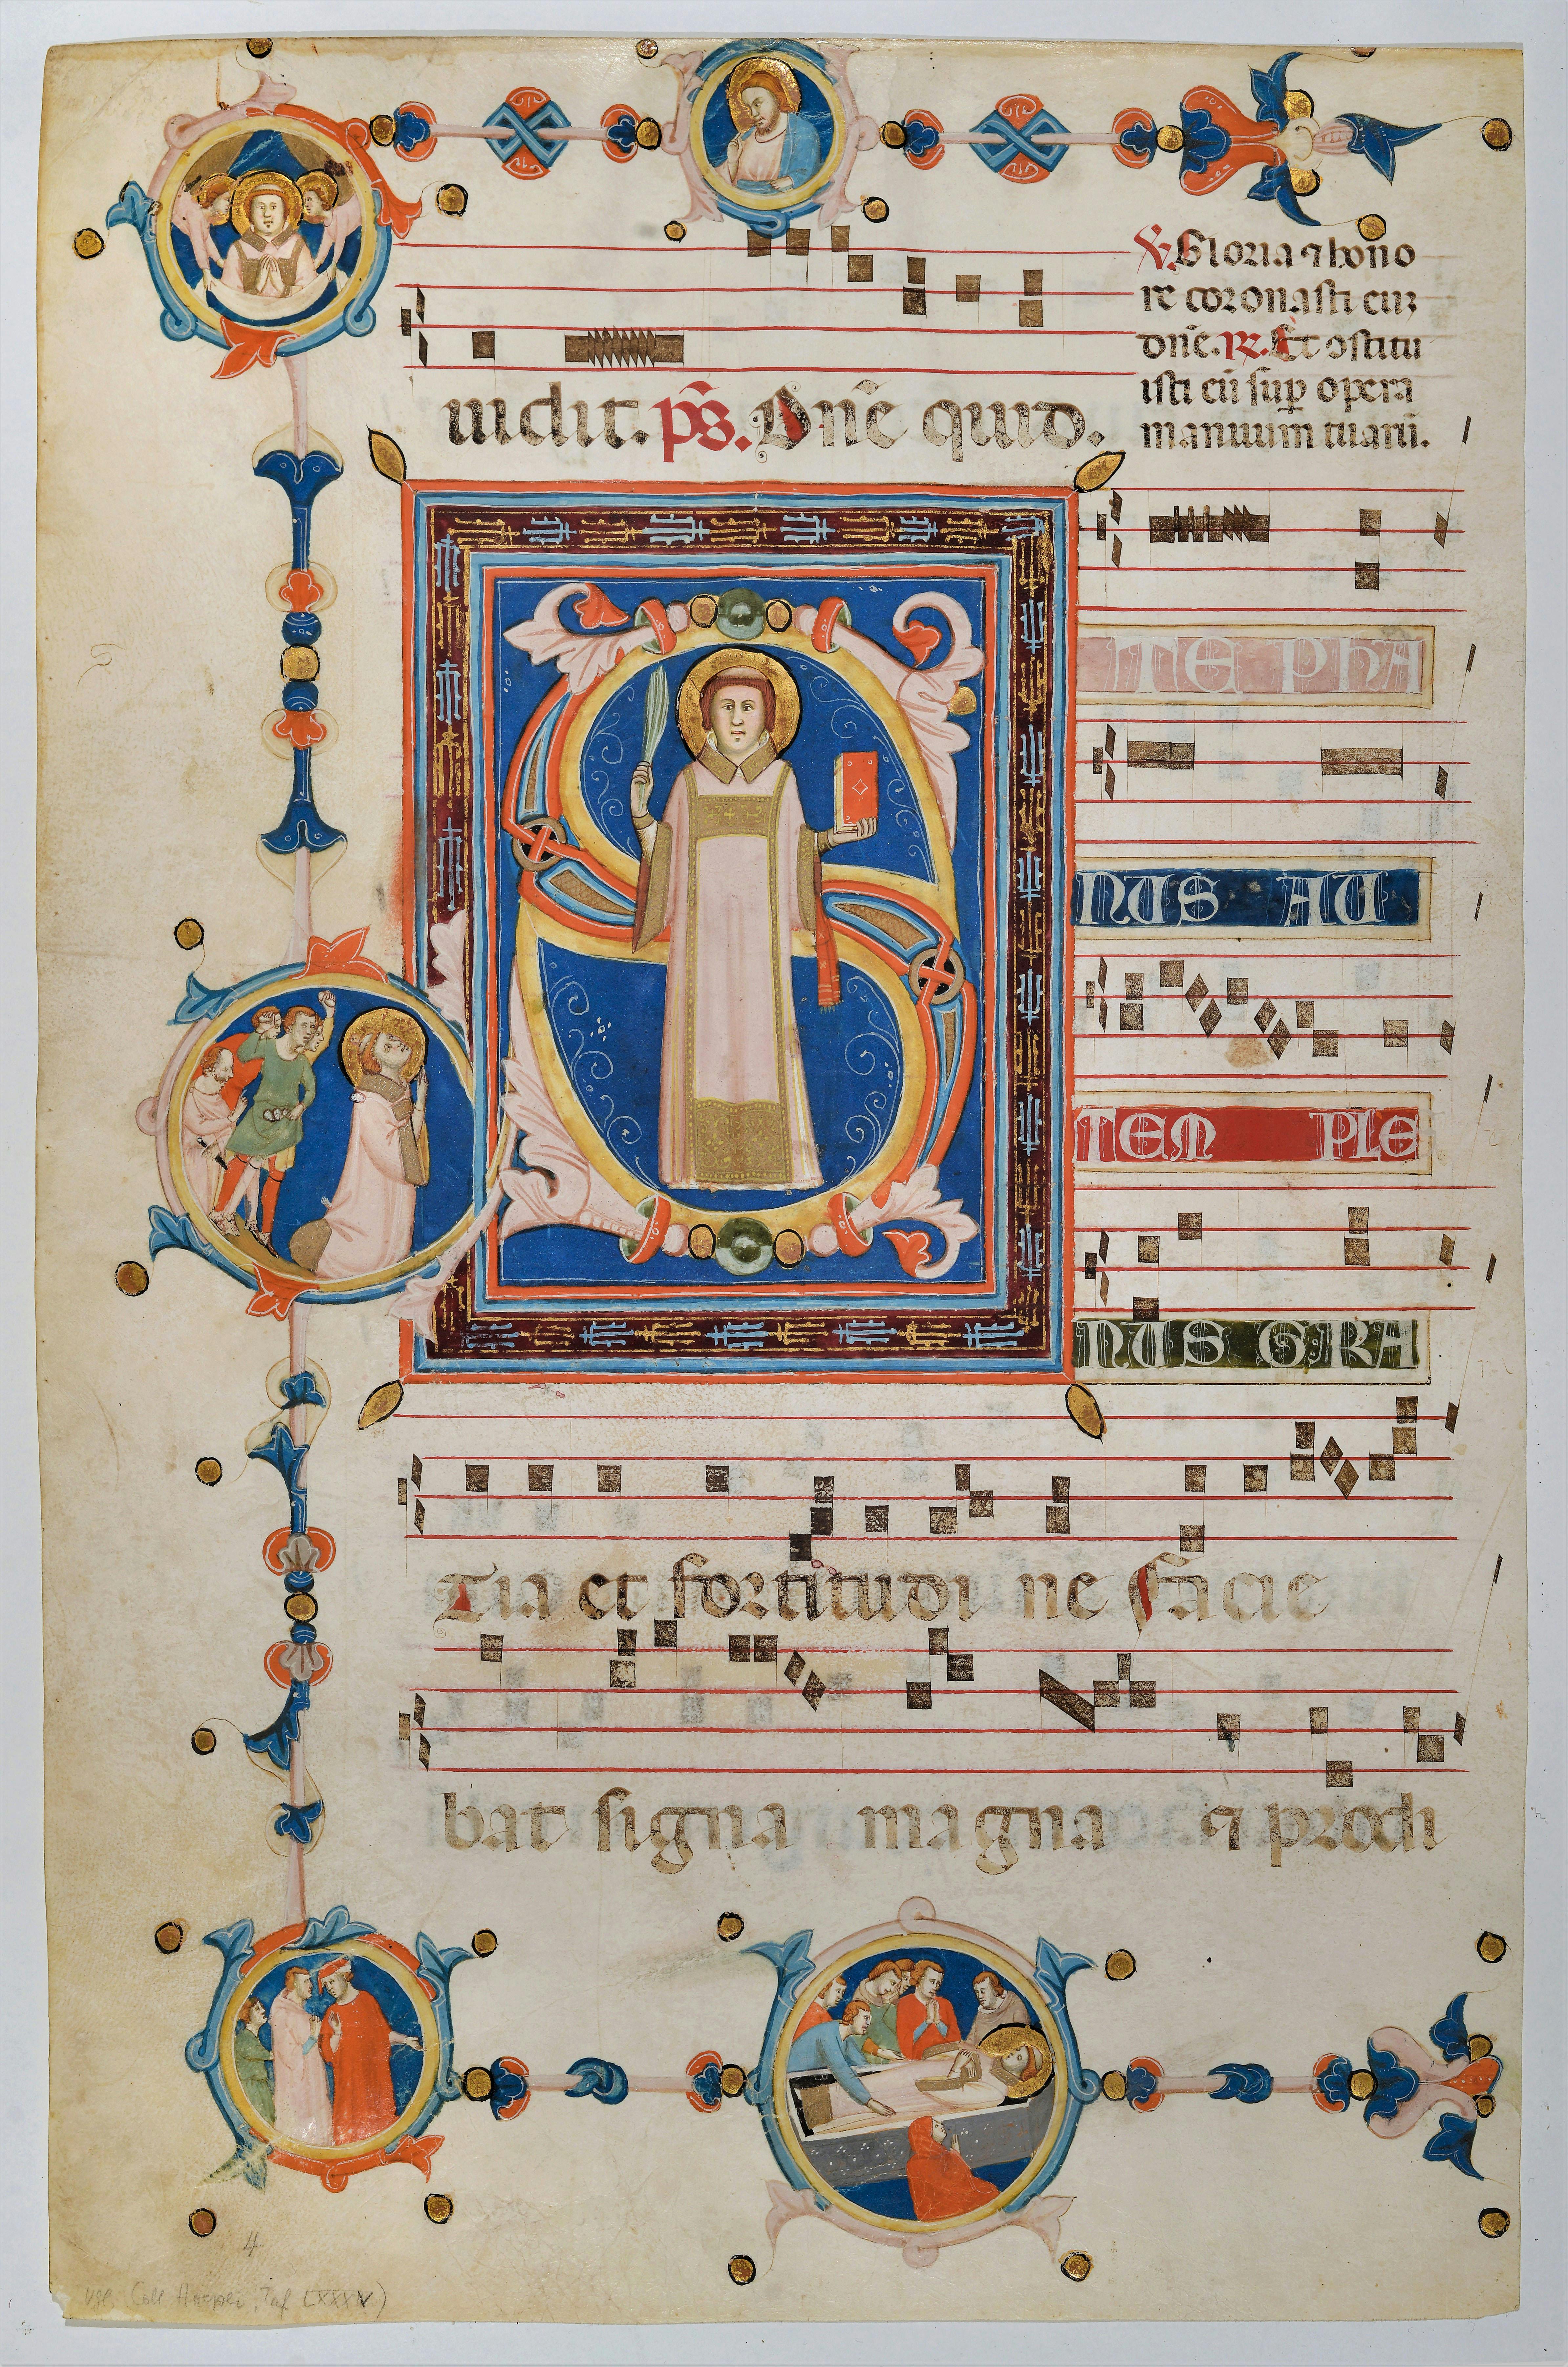 uidit. ps̄. Dn̄e quid.
℣. Gloria ⁊ hono
re coronasti euȝ
dn̄e. ꝶ. Et ↄstitu
isti eū sup̱ opera
manuum tuaꝝ̄.
S TEPHA
NUS AU
TEM PLE
NUS GRA
Tia et fortitudi ne facie
bat signa magna ⁊ prodi
4
LXXXV)